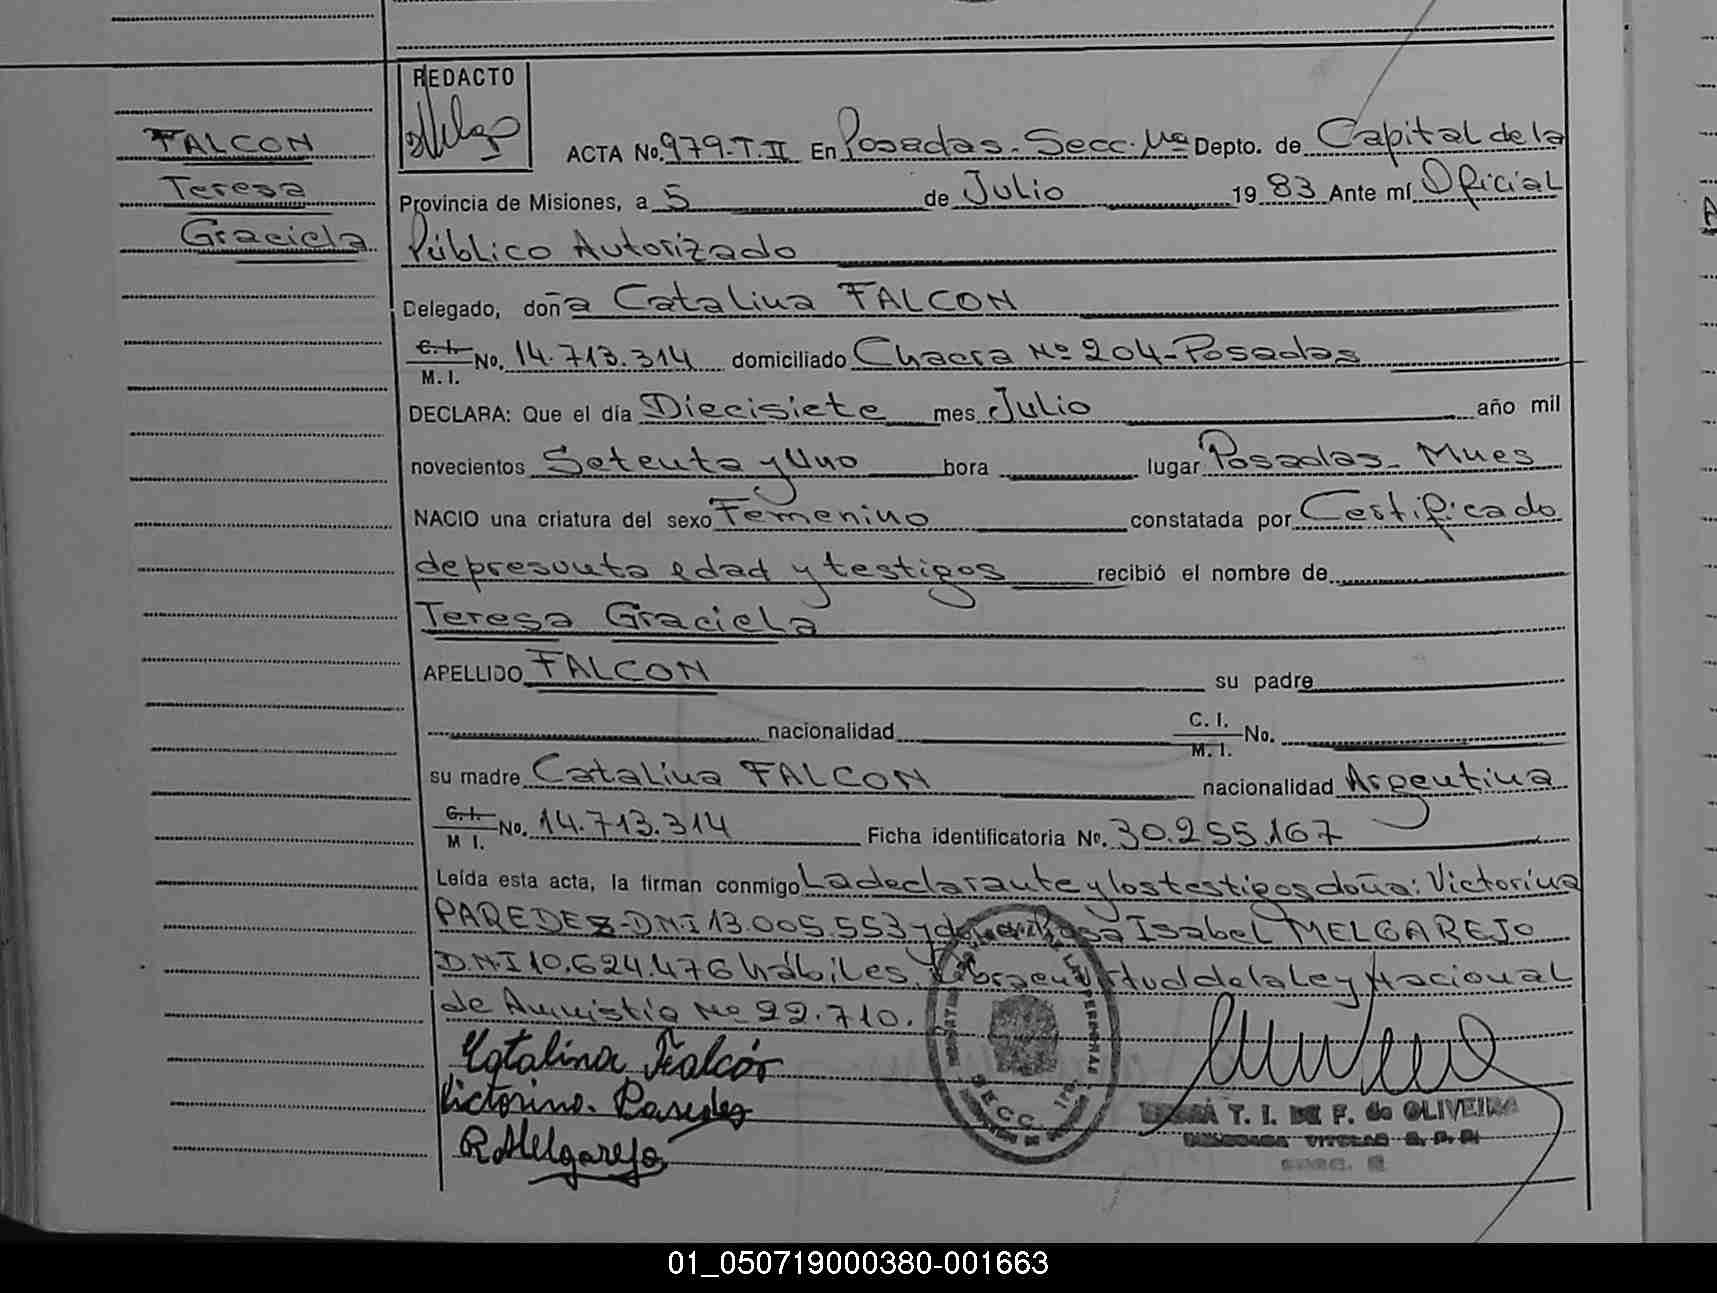 REDACTO
FALCON
Teresa
Graciela
ACTA No. 979-T.II En Posadas-Secc. 1ra Depto. de Capital de la
Provincia de Misiones, a 5 de Julio 1983 Ante mí Oficial
Público Autorizado
Delegado, doña Catalina FALCON
C.I. M.I. No. 14.713.314 domiciliado Chacra Nº 204-Posadas
DECLARA: Que el día Diecisiete mes Julio año mil
novecientos Setenta y Uno hora lugar Posadas-Mnes
NACIO una criatura del sexo Femenino constatada por Certificado
de presunta edad y testigos recibió el nombre de
Teresa Graciela
APELLIDO FALCON su padre
nacionalidad C.I. M.I. No.
su madre Catalina FALCON nacionalidad Argentina
C.I. M.I. No. 14.713.314 Ficha identificatoria No. 30.255.167
Leída esta acta, la firman conmigo La declarante y los testigos doña: Victorina
PAREDES-DNI 13.005.553 y doña Rosa Isabel MELGAREJO
D.N.I 10.624.476 hábiles. Labra en virtud de la Ley Nacional
de Amnistía Nº 22.710.
Catalina Falcón
Victorina. Paredes
R. Melgarejo
SECC.
T. I. DE F. de OLIVEIRA
01_050719000380-001663